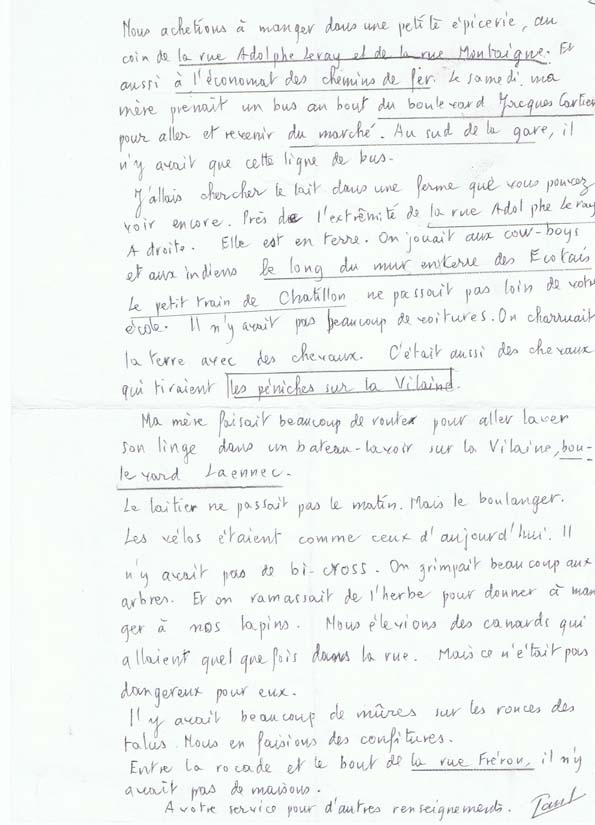 Nous achetions à manger dans une petite épicerie, au
coin de la rue Adolphe Leray et de la rue Montaigne. Et
aussi à l'économat des chemins de fer. Le samedi, ma
mère prenait un bus au bout du boulevard Jacques Cartier
pour aller et revenir du marché. Au sud de la gare, il
n'y avait que cette ligne de bus.
J'allais chercher le lait dans une ferme que vous pouvez
voir encore. Près de l'extrêmité de la rue Adolphe Leray
A droite. Elle est en terre. On jouait aux cow-boys
et aux indiens le long du mur en terre des Ecotais
Le petit train de Chatillon ne passait pas loin de votre
école. Il n'y avait pas beaucoup de voitures. On charruait
la terre avec des chevaux. C'était aussi des chevaux
qui tiraient les péniches sur la Vilaine.
Ma mère faisait beaucoup de route pour aller laver
son linge dans un bateau-lavoir sur la Vilaine, bou-
levard Laennec.
Le laitier ne passait pas le matin. Mais le boulanger.
Les vélos étaient comme ceux d'aujourd'hui. Il
n'y avait pas de bi-cross. On grimpait beaucoup aux
arbres. Et on ramassait de l'herbe pour donner à man
ger à nos lapins. Nous élevions des canards qui
allaient quelquefois dans la rue. Mais ce n'était pas
dangereux pour eux.
Il y avait beaucoup de mûres sur les ronces des
talus. Nous en faisions des confitures.
Entre la rocade et le bout de la rue Fréron, il n'y
avait pas de maisons.
A votre service pour d'autres renseignements.